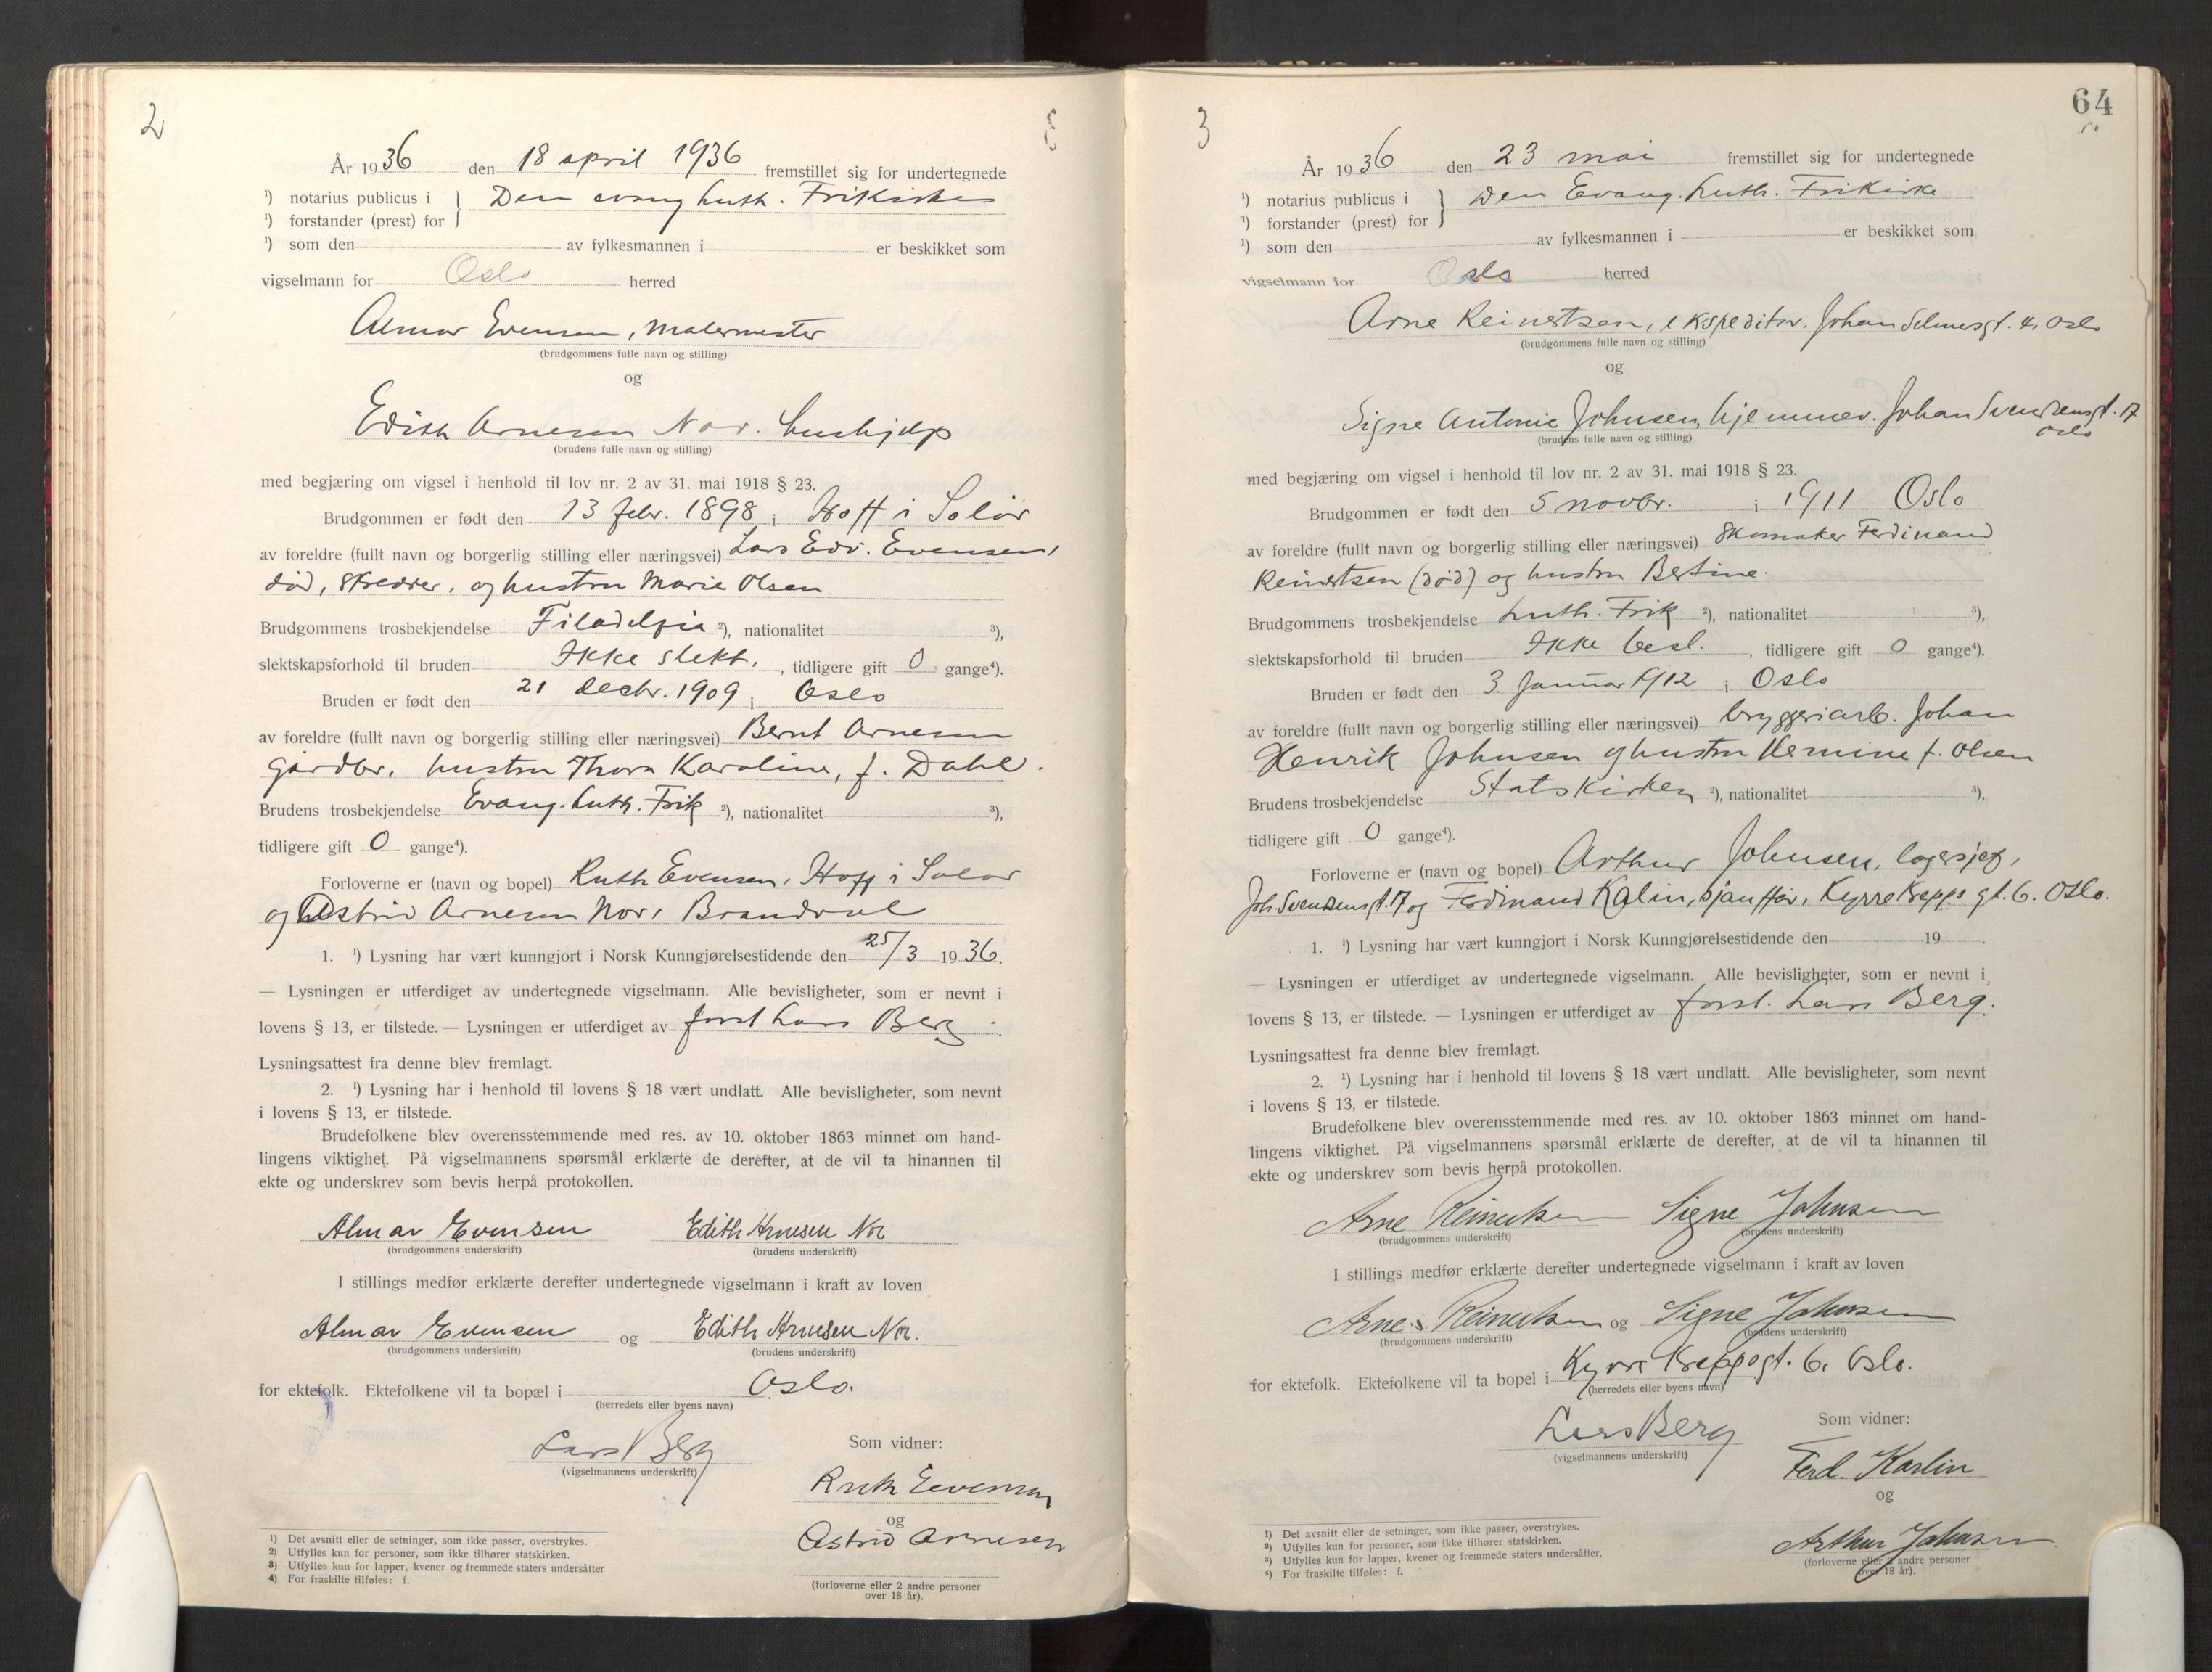 2
År 1936 den 18 april 1936 fremstillet sig for undertegnede
¹) notarius publicus i } Den evang luth. Frikirke
¹) forstander (prest) for
¹) som den av fylkesmannen i er beskikket som
vigselmann for Oslo herred
Almar Evensen, Malermester
(brudgommens fulle navn og stilling)
og
Edith Arnesen Nor. hushjelp
(brudens fulle navn og stilling)
med begjæring om vigsel i henhold til lov nr. 2 av 31. mai 1918 § 23.
Brudgommen er født den 13 febr. 1898 i Hoff i Solør
av foreldre (fullt navn og borgerlig stilling eller næringsvei) Lars Edv. Evensen,
død, skredder, og hustru Marie Olsen
Brudgommens trosbekjendelse Filadelfia ²), nationalitet ³),
slektskapsforhold til bruden Ikke slekt. , tidligere gift 0 gange⁴).
Bruden er født den 21 decbr. 1909 i Oslo
av foreldre (fullt navn og borgerlig stilling eller næringsvei) Bernt Arnesen
gårdbr. hustru Thora Karoline, f. Dahl.
Brudens trosbekjendelse Evang. Luth. Frik ²), nationalitet ³),
tidligere gift 0 gange⁴).
Forloverne er (navn og bopel) Ruth Evensen, Hoff i Solør
og Astrid Arnesen Nor, Brandval
1. ¹) Lysning har vært kunngjort i Norsk Kunngjørelsestidende den 25/3 1936.
— Lysningen er utferdiget av undertegnede vigselmann. Alle bevisligheter, som er nevnt i
lovens § 13, er tilstede. — Lysningen er utferdiget av forst Lars Berg.
Lysningsattest fra denne blev fremlagt.
2. ¹) Lysning har i henhold til lovens § 18 vært undlatt. Alle bevisligheter, som nevnt
i lovens § 13, er tilstede.
Brudefolkene blev overensstemmende med res. av 10. oktober 1863 minnet om hand-
lingens viktighet. På vigselmannens spørsmål erklærte de derefter, at de vil ta hinannen til
ekte og underskrev som bevis herpå protokollen.
Almar Evensen Edith Arnesen Nor
(brudgommens underskrift) (brudens underskrift)
I stillings medfør erklærte derefter undertegnede vigselmann i kraft av loven
Almar Evensen og Edith Arnesen Nor.
(brudgommens underskrift) (brudens underskrift)
for ektefolk. Ektefolkene vil ta bopæl i Oslo.
(herredets eller byens navn)
Lars Berg
(vigselmannens underskrift)
Som vidner:
Ruth Evensen
og
Astrid Arnesen
(forloverne eller 2 andre personer
over 18 år).
¹) Det avsnitt eller de setninger, som ikke passer, overstrykes.
²) Utfylles kun for personer, som ikke tilhører statskirken.
³) Utfylles kun for lapper, kvener og fremmede staters undersåtter
⁴) For fraskilte tilføies: f.
3
64
År 1936 den 23 mai fremstillet sig for undertegnede
¹) notarius publicus i } Den Evang. Luth. Frikirke
¹) forstander (prest) for
¹) som den av fylkesmannen i er beskikket som
vigselmann for Oslo herred
Arne Reinertsen, ekspeditør. Johan Selmersgt. 4, Oslo
(brudgommens fulle navn og stilling)
og
Signe Antonie Johnsen, hjemmev. Johan Svendsensgt. 17
Oslo
(brudens fulle navn og stilling)
med begjæring om vigsel i henhold til lov nr. 2 av 31. mai 1918 § 23.
Brudgommen er født den 5 novbr. i 1911 Oslo
av foreldre (fullt navn og borgerlig stilling eller næringsvei) Skomaker Ferdinand
Reinertsen (død) og hustru Bertine.
Brudgommens trosbekjendelse Luth. Frik ²), nationalitet ³),
slektskapsforhold til bruden Ikke besl. , tidligere gift 0 gange⁴).
Bruden er født den 3. Januar 1912 i Oslo
av foreldre (fullt navn og borgerlig stilling eller næringsvei) bryggeriarb. Johan
Henrik Johnsen og hustru Hermine f. Olsen
Brudens trosbekjendelse Statskirken ²), nationalitet ³),
tidligere gift 0 gange⁴).
Forloverne er (navn og bopel) Arthur Johnsen, lagersjef,
Joh. Svendsensgt. 17 og Ferdinand Kalin, sjauffør, Kyrre Grepps gt. 6. Oslo.
1. ¹) Lysning har vært kunngjort i Norsk Kunngjørelsestidende den 19 .
— Lysningen er utferdiget av undertegnede vigselmann. Alle bevisligheter, som er nevnt i
lovens § 13, er tilstede. — Lysningen er utferdiget av forst. Lars Berg.
Lysningsattest fra denne blev fremlagt.
2. ¹) Lysning har i henhold til lovens § 18 vært undlatt. Alle bevisligheter, som nevnt
i lovens § 13, er tilstede.
Brudefolkene blev overensstemmende med res. av 10. oktober 1863 minnet om hand-
lingens viktighet. På vigselmannens spørsmål erklærte de derefter, at de vil ta hinannen til
ekte og underskrev som bevis herpå protokollen.
Arne Reinertsen Signe Johnsen
(brudgommens underskrift) (brudens underskrift)
I stillings medfør erklærte derefter undertegnede vigselmann i kraft av loven
Arne Reinertsen og Signe Johnsen
(brudgommens underskrift) (brudens underskrift)
for ektefolk. Ektefolkene vil ta bopel i Kyrre Greppsgt. 6. Oslo.
(herredets eller byens navn)
Lars Berg
(vigselmannens underskrift)
Som vidner:
Ferd. Karlin
og
Arthur Johnsen
(forloverne eller 2 andre personer
over 18 år).
¹) Det avsnitt eller de setninger, som ikke passer, overstrykes.
²) Utfylles kun for personer, som ikke tilhører statskirken.
³) Utfylles kun for lapper, kvener og fremmede staters undersåtter.
⁴) For fraskilte tilføies: f.